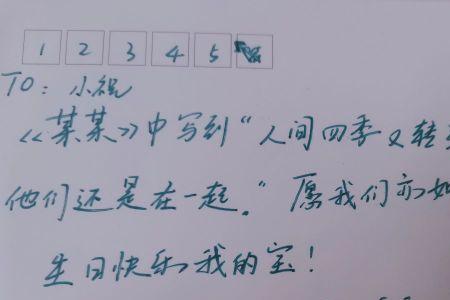 1 2 3 4 5
TO: 小祝
《某某》中写到“人间四季又转
他们还是在一起。”愿我们亦如
生日快乐我的宝!